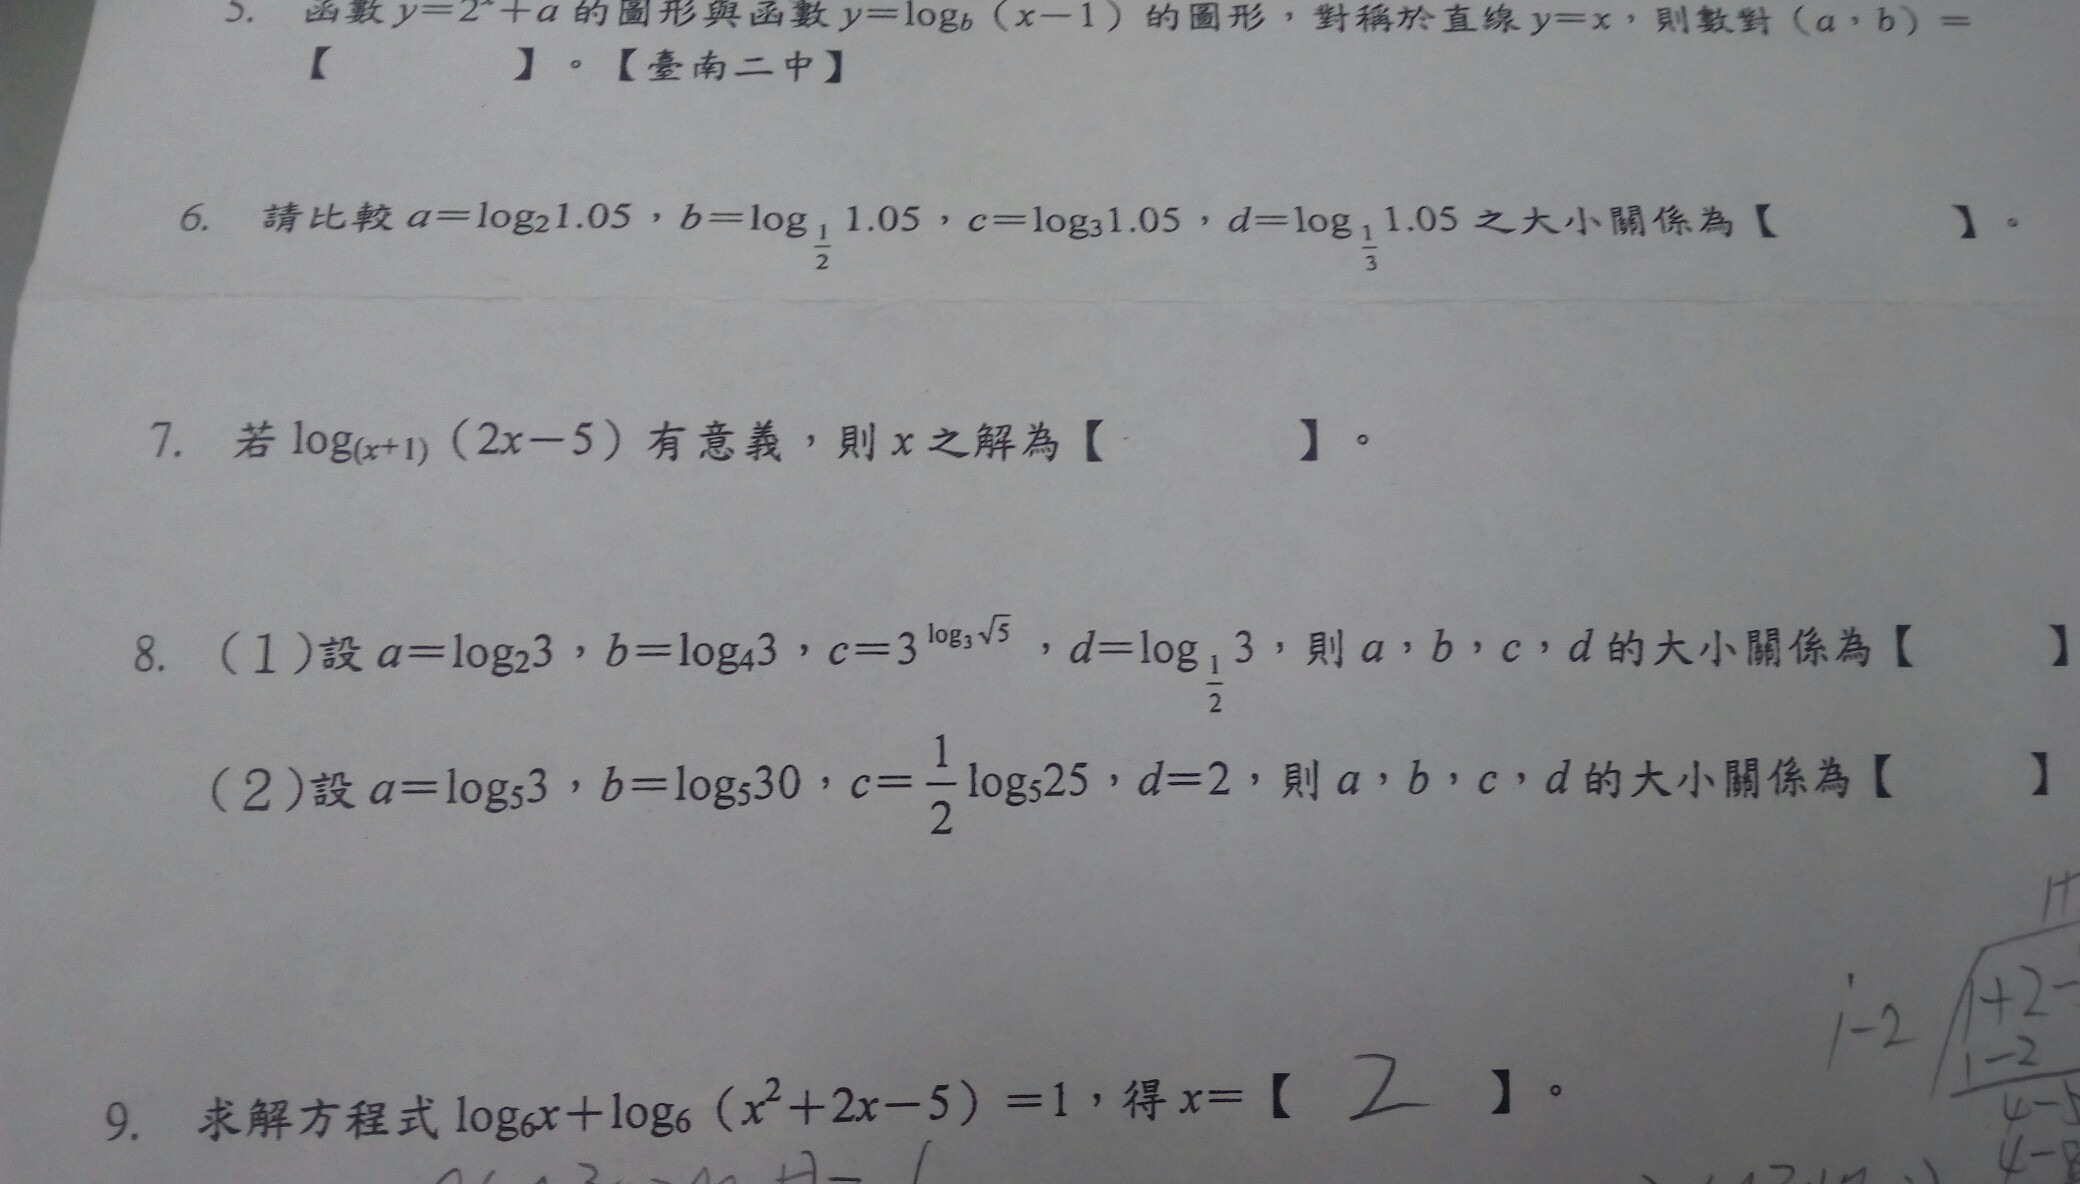 5. 函數 y=2ˣ+a 的圖形與函數 y=log_b（x−1）的圖形，對稱於直線 y=x，則數對（a，b）=
【 】。【臺南二中】
6. 請比較 a=log₂1.05，b=log_{1/2} 1.05，c=log₃1.05，d=log_{1/3} 1.05 之大小關係為【 】。
7. 若 log₍ₓ₊₁₎（2x−5）有意義，則 x 之解為【 】。
8. (1)設 a=log₂3，b=log₄3，c=3^{log₃√5}，d=log_{1/2} 3，則 a，b，c，d 的大小關係為【 】
(2)設 a=log₅3，b=log₅30，c=1/2 log₅25，d=2，則 a，b，c，d 的大小關係為【 】
1+
1-2
1+2-
1-2
4-5
4-8
9. 求解方程式 log₆x+log₆（x²+2x−5）=1，得 x=【 2 】。